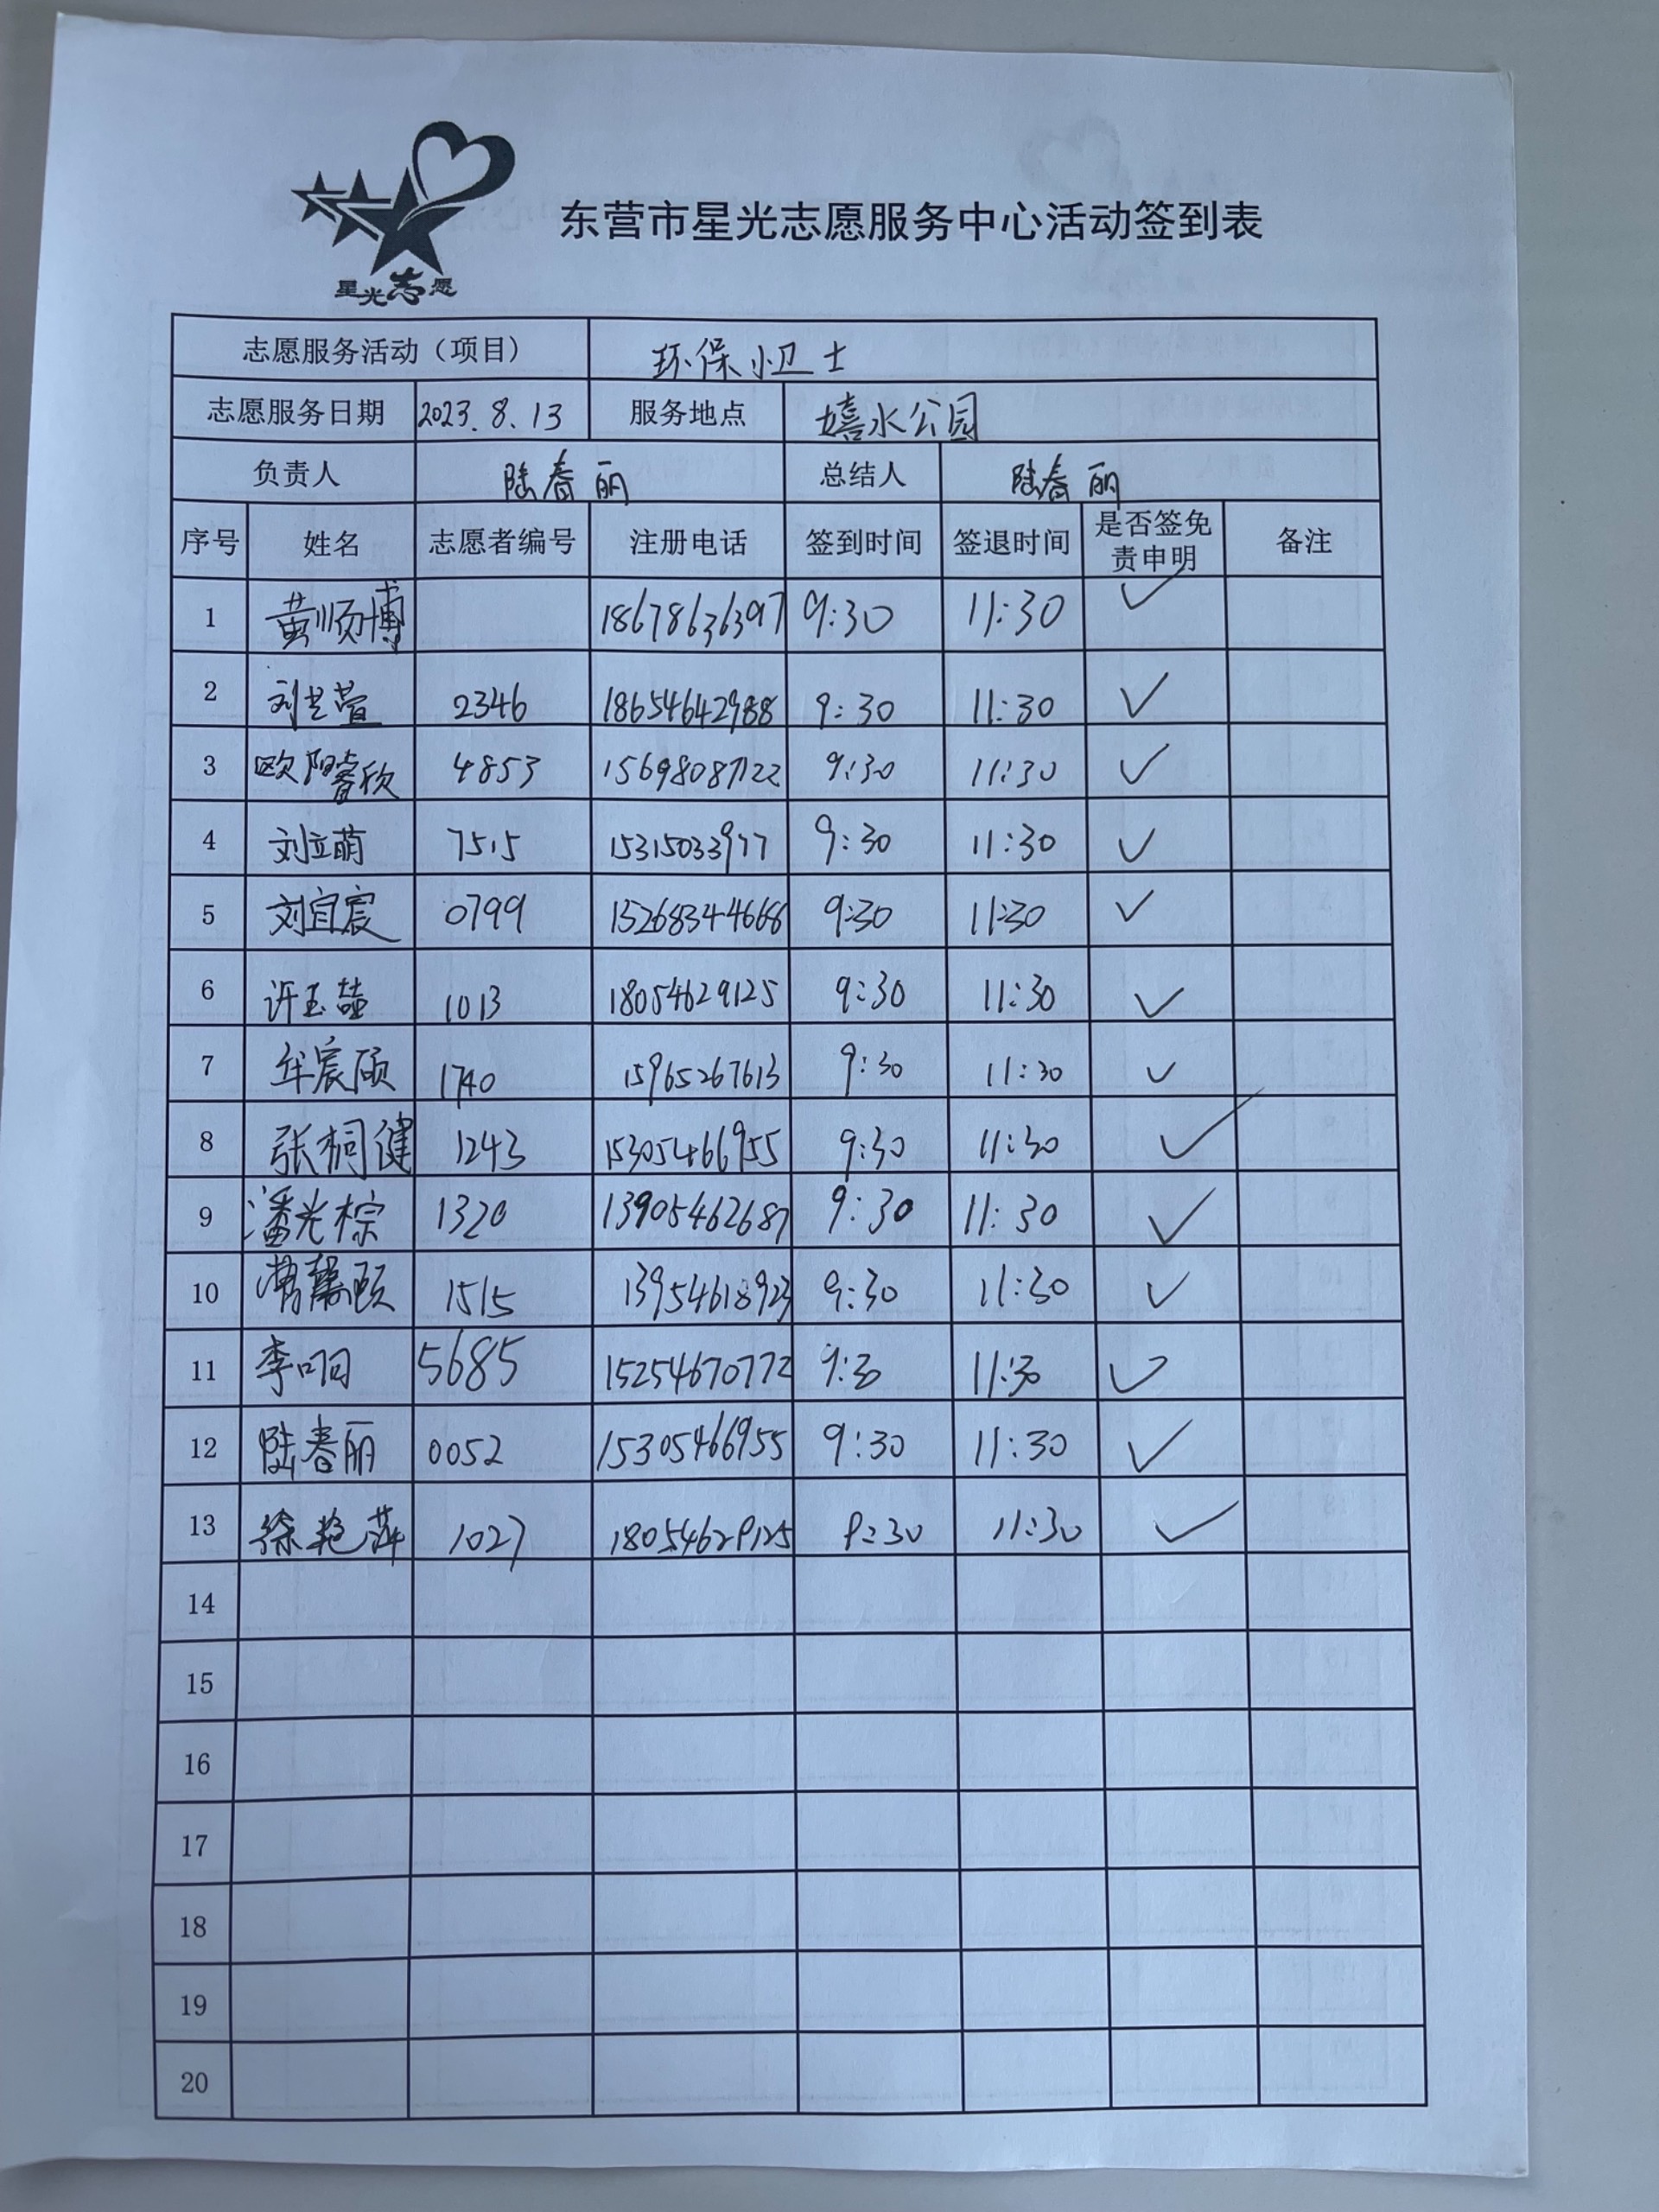 星光志愿
东营市星光志愿服务中心活动签到表
志愿服务活动（项目） 环保小卫士
志愿服务日期 2023.8.13 服务地点 嬉水公园
负责人 陆春丽 总结人 陆春丽
序号 姓名 志愿者编号 注册电话 签到时间 签退时间 是否签免责申明 备注
1 黄顺博 18678636397 9:30 11:30 ✓
2 刘芸萱 2346 18654642988 9:30 11:30 ✓
3 欧阳睿欣 4853 15698087122 9:30 11:30 ✓
4 刘立萌 7515 15315033977 9:30 11:30 ✓
5 刘宜宸 0799 15268344668 9:30 11:30 ✓
6 许玉喆 1013 18054629125 9:30 11:30 ✓
7 牟宸硕 1740 15965267613 9:30 11:30 ✓
8 张桐健 1243 15305466955 9:30 11:30 ✓
9 潘光棕 1320 13905462687 9:30 11:30 ✓
10 1515 13954618923 9:30 11:30 ✓
11 李明 5685 15254670772 9:30 11:30 ✓
12 陆春丽 0052 15305466955 9:30 11:30 ✓
13 徐艳萍 1027 18054629125 9:30 11:30 ✓
14
15
16
17
18
19
20